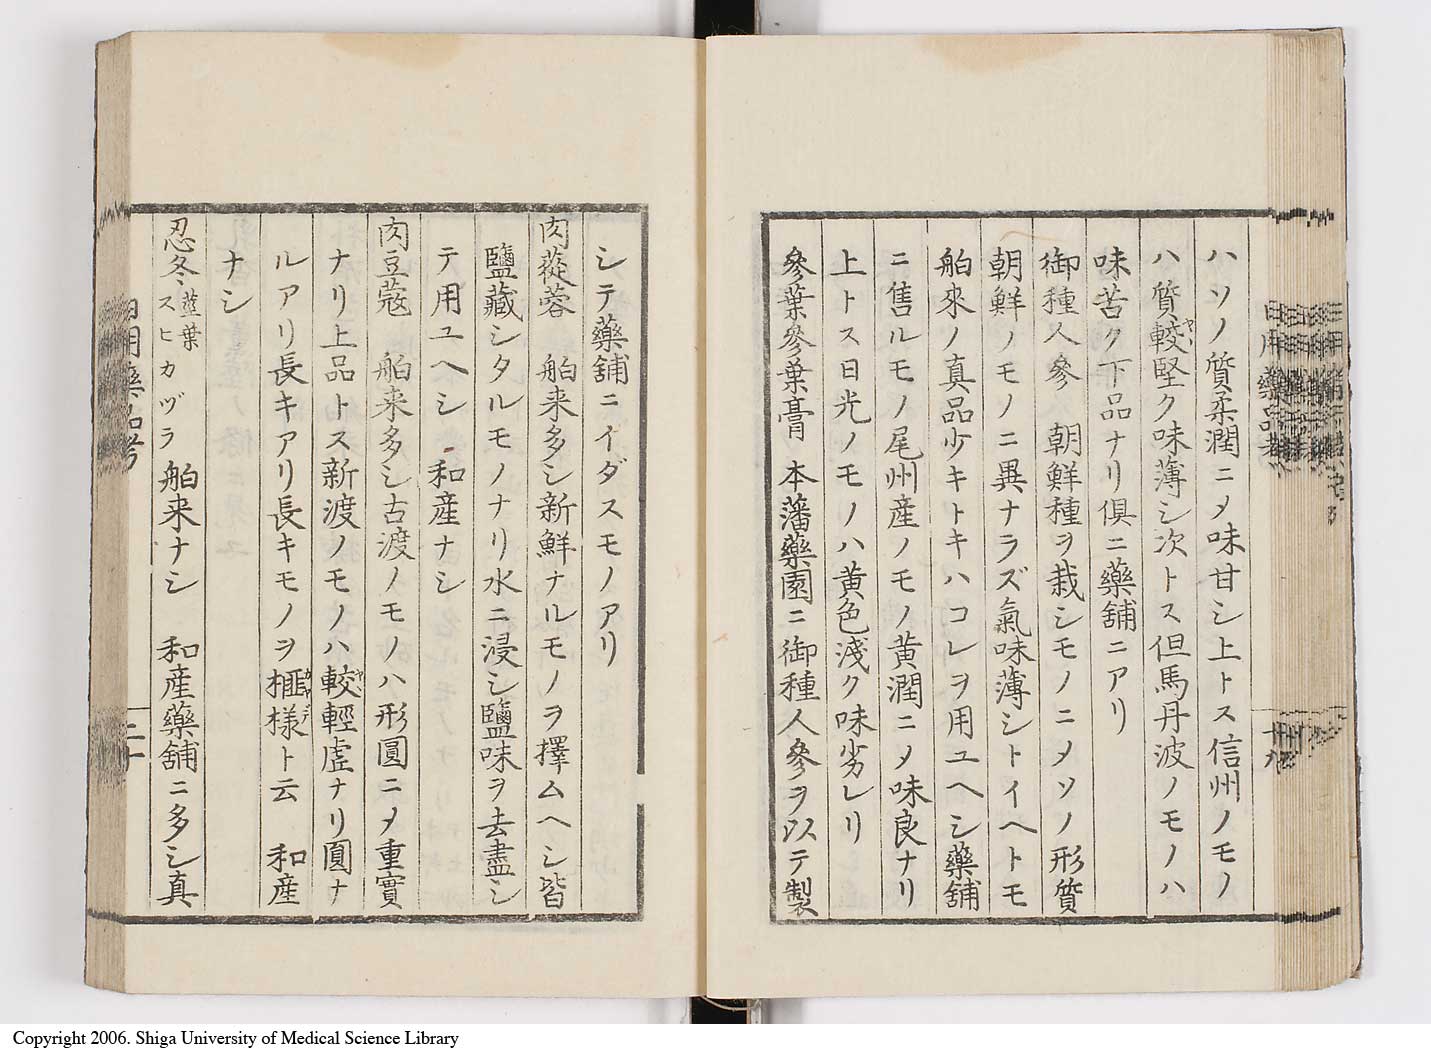 ハソノ質柔潤ニ〆味甘シ上トス信州ノモノ
ハ質較ヤヽ堅ク味薄シ次トス但馬丹波ノモノハ
味苦ク下品ナリ倶ニ藥舖ニアリ
御種人參 朝鮮種ヲ栽シモノニ〆ソノ形質
朝鮮ノモノニ異ナラズ氣味薄シトイヘトモ
舶來ノ真品少キトキハコレヲ用ユヘシ藥舖
ニ售ルモノ尾州産ノモノ黄潤ニ〆味良ナリ
上トス日光ノモノハ黄色淺ク味劣レリ
參葉參葉膏 本藩藥園ニ御種人參ヲ以テ製
シテ藥舖ニイダスモノアリ
肉蓯蓉 舶来多シ新鮮ナルモノヲ擇ムヘシ皆
鹽藏シタルモノナリ水ニ浸シ鹽味ヲ去盡シ
テ用ユヘシ 和産ナシ
肉豆蔻 舶来多シ古渡ノモノハ形圓ニ〆重實
ナリ上品トス新渡ノモノハ較ヤヽ輕虚ナリ圓ナ
ルアリ長キアリ長キモノヲ榧カヤ様デト云 和産
ナシ
忍冬 莖葉 スヒカヅラ 舶来ナシ 和産藥舖ニ多シ真
日用藥品考
二十
日用藥品考
十九
Copyright 2006. Shiga University of Medical Science Library